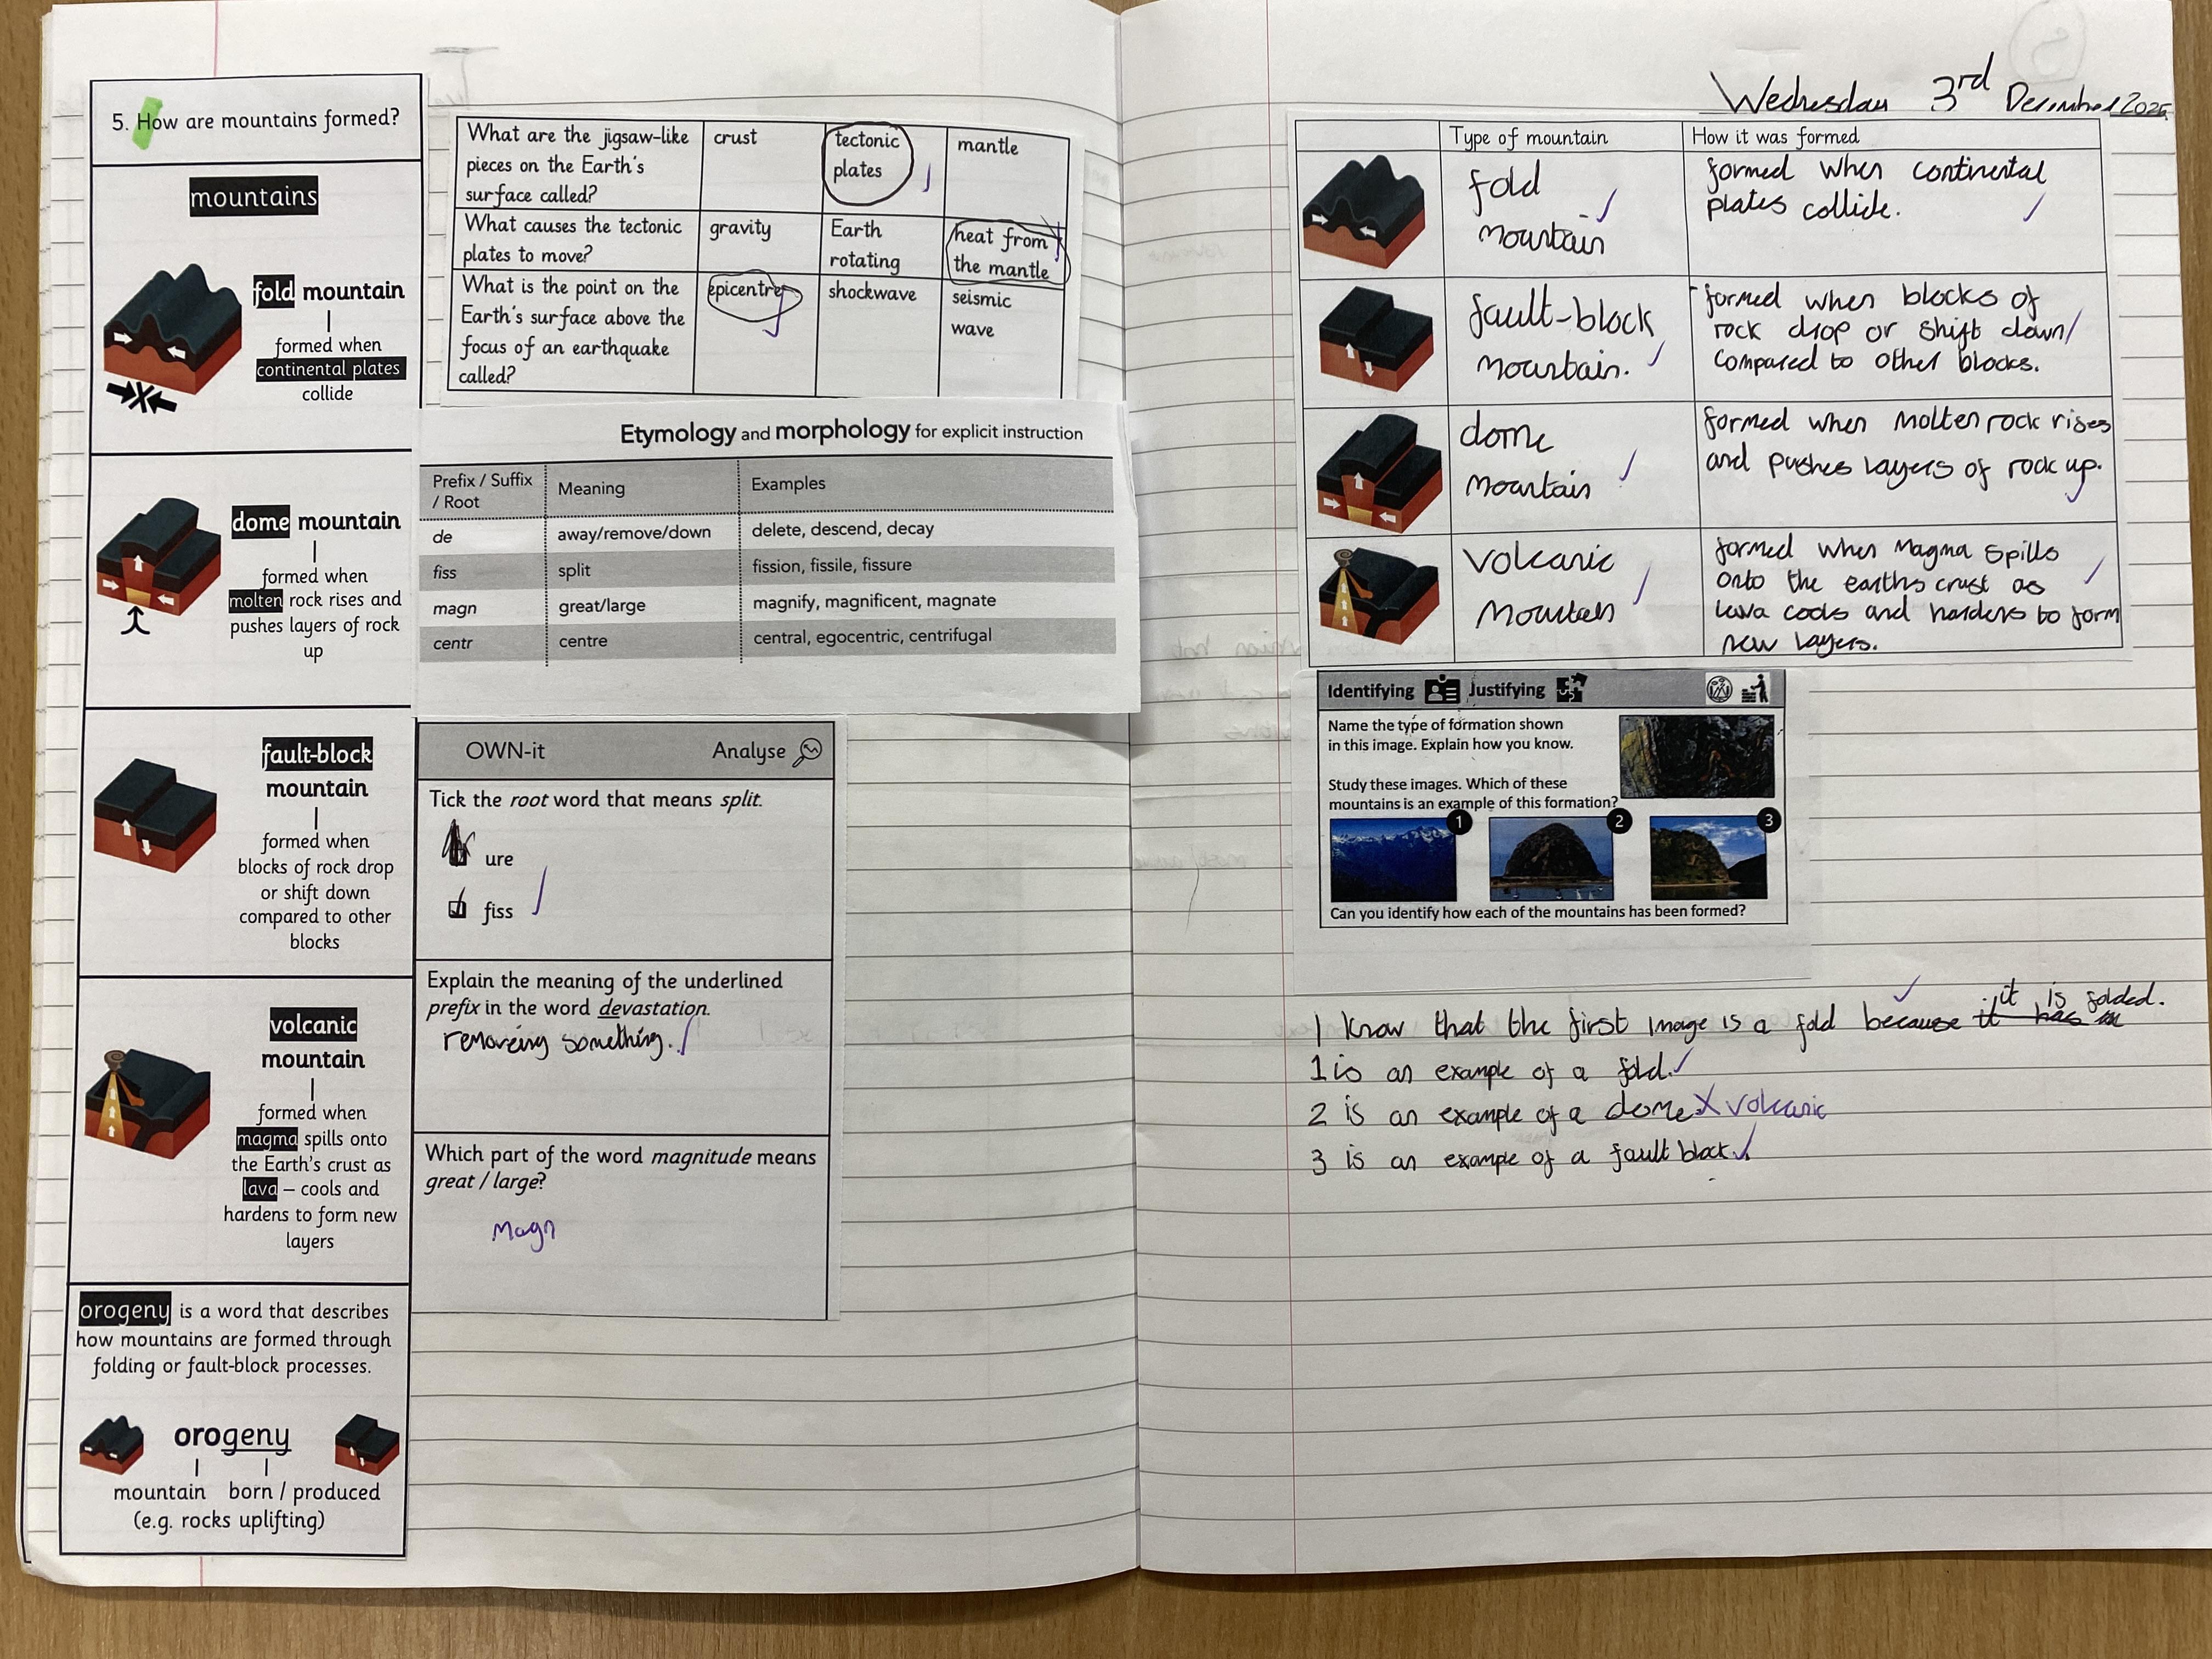 5. How are mountains formed?
mountains
fold mountain
formed when
continental plates
collide
dome mountain
formed when
molten rock rises and
pushes layers of rock
up
fault-block
mountain
formed when
blocks of rock drop
or shift down
compared to other
blocks
volcanic
mountain
formed when
magma spills onto
the Earth's crust as
lava – cools and
hardens to form new
layers
orogeny is a word that describes
how mountains are formed through
folding or fault-block processes.
orogeny
mountain born / produced
(e.g. rocks uplifting)
What are the jigsaw-like
pieces on the Earth's
surface called?
crust
tectonic
plates
mantle
What causes the tectonic
plates to move?
gravity
Earth
rotating
heat from
the mantle
What is the point on the
Earth's surface above the
focus of an earthquake
called?
epicentre
shockwave
seismic
wave
Etymology and morphology for explicit instruction
Prefix / Suffix
/ Root
Meaning
Examples
de
away/remove/down
delete, descend, decay
fiss
split
fission, fissile, fissure
magn
great/large
magnify, magnificent, magnate
centr
centre
central, egocentric, centrifugal
OWN-it Analyse
Tick the root word that means split.
ure
fiss
Explain the meaning of the underlined
prefix in the word devastation.
removeing something.
Which part of the word magnitude means
great / large?
Magn
Wednesday 3rd December
Type of mountain
How it was formed
fold
mountain
formed when continental
plates collide.
fault-block
mountain.
formed when blocks of
rock drop or shift down
compared to other blocks.
dome
mountain
formed when molten rock rises
and pushes layers of rock up.
Volcanic
formed when Magma spills
onto the earths crust as
lava cools and hardens to form
new layers.
Identifying Justifying
Name the type of formation shown
in this image. Explain how you know.
Study these images. Which of these
mountains is an example of this formation?
1
2
3
Can you identify how each of the mountains has been formed?
I know that the first image is a fold because it has it is folded.
1 is an example of a fold.
2 is an example of a dome X volcanic
3 is an example of a fault block.